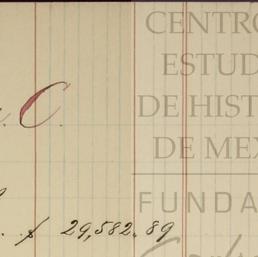 CENTRO
ESTUD
DE HIST
DE MEX
C.
FUNDA
$ 29,582.89